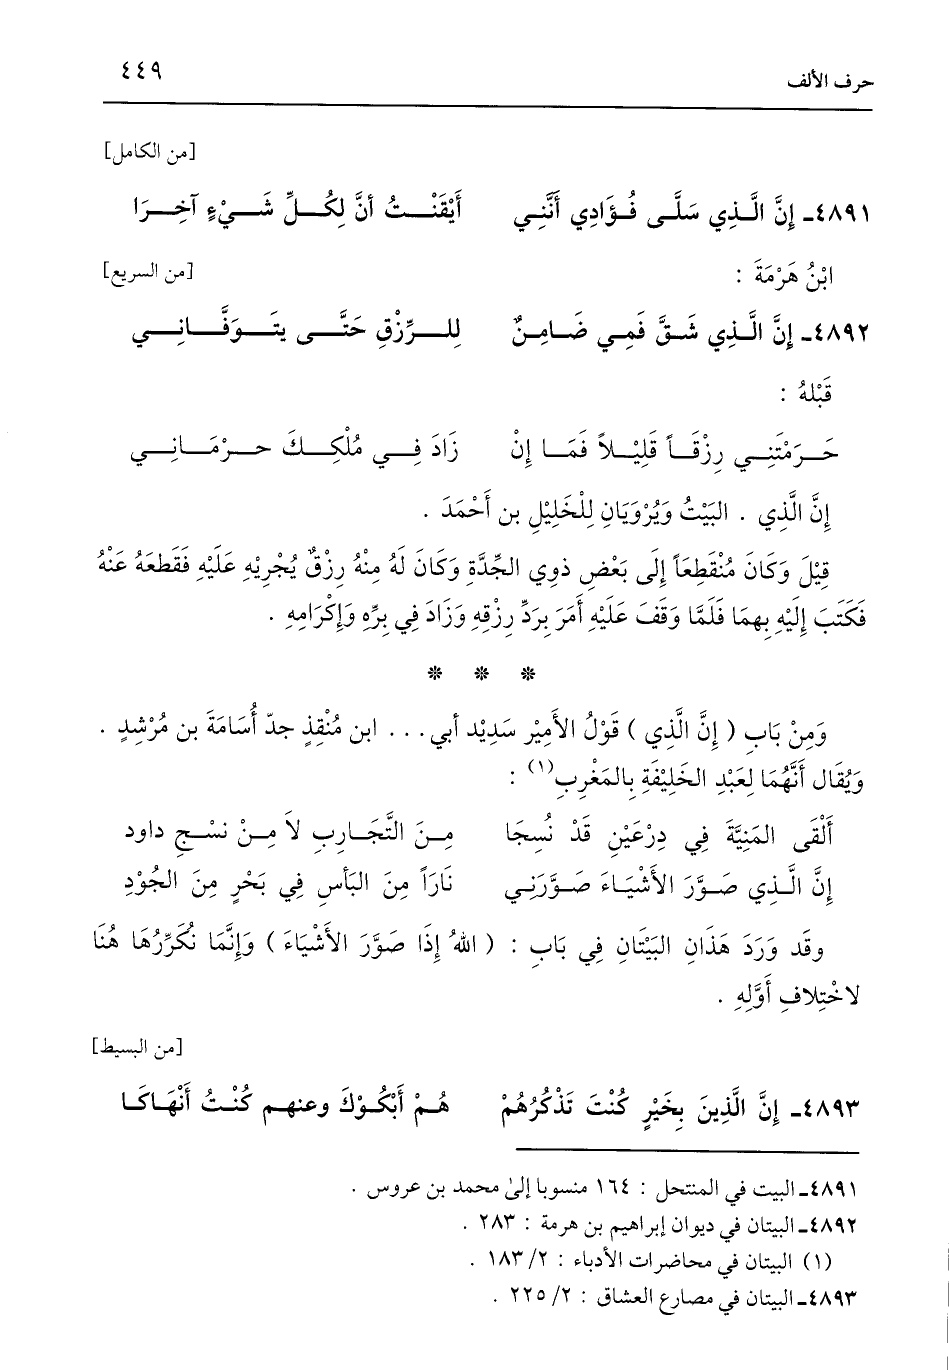 حرف الألف ٤٤٩
[من الكامل]
٤٨٩١ـ إِنَّ الَّـذِي سَلَّـى فُـؤَادِي أَنَّنِـي أَيْقَنْـتُ أنَّ لِكُـلِّ شَـيْءٍ آخِـرَا
ابْنُ هَرْمَةَ : [من السريع]
٤٨٩٢ـ إِنَّ الَّـذِي شَـقَّ فَمِـي ضَـامِـنٌ لِلـرِّزْقِ حَتَّـى يَتَـوَفَّـانِـي
قَبْلهُ :
حَـرَمْتَنِـي رِزْقَـاً قَلِيْـلاً فَمَـا إِنْ زَادَ فِـي مُلْكِـكَ حـرْمَـانِـي
إِنَّ الَّذِي . البَيْتُ وَيُرْوَيَانِ لِلْخَلِيْلِ بن أَحْمَدَ .
قِيْلَ وَكَانَ مُنْقَطِعَاً إِلَى بَعْضِ ذوِي الجِّدَّةِ وَكَانَ لَهُ مِنْهُ رِزْقٌ يُجْرِيْهِ عَلَيْهِ فَقَطَعَهُ عَنْهُ
فَكَتَبَ إِلَيْهِ بِهِمَا فَلَمَّا وَقَفَ عَلَيْهِ أَمَرَ بِرَدِّ رِزْقِهِ وَزَادَ فِي بِرِّه وَإِكْرَامِهِ .
* * *
وَمِنْ بَابِ ( إِنَّ الَّذِي ) قَوْلُ الأَمِيْرِ سَدِيْدِ أبي... ابن مُنْقِذٍ جدّ أُسَامَةَ بن مُرْشِدٍ .
وَيُقَال أَنَّهُمَا لِعَبْدِ الخَلِيْفَةِ بِالمَغْرِبِ(١) :
أَلْقَى المَنِيَّةَ فِي دِرْعَيْنِ قَدْ نُسِجَا مِـنَ التَّجَـارِبِ لاَ مِـنْ نسْـجِ داود
إِنَّ الَّـذِي صَـوَّرَ الأَشْيَـاءَ صَـوَّرَنِـي نَارَاً مِنَ البَأْسِ فِي بَحْرٍ مِنَ الجُوْدِ
وقَد وَرَدَ هَذَانِ البَيْتَانِ فِي بَابِ : ( اللهُ إِذَا صَوَّرَ الأَشْيَاءَ ) وَإِنَّمَا نُكَرِّرُهَا هُنَا
لاخْتِلافِ أَوَّلِهِ .
[من البسيط]
٤٨٩٣ـ إِنَّ الَّذِينَ بِخَيْرٍ كُنْتَ تَذْكُرُهُمْ هُـمْ أَبْكُـوْكَ وعنهـم كُنْـتُ أَنْهَـاكَـا
٤٨٩١ـ البيت في المنتحل : ١٦٤ منسوبا إلىٰ محمد بن عروس .
٤٨٩٢ـ البيتان في ديوان إبراهيم بن هرمة : ٢٨٣ .
(١) البيتان في محاضرات الأدباء : ٢/ ١٨٣ .
٤٨٩٣ـ البيتان في مصارع العشاق : ٢/ ٢٢٥ .